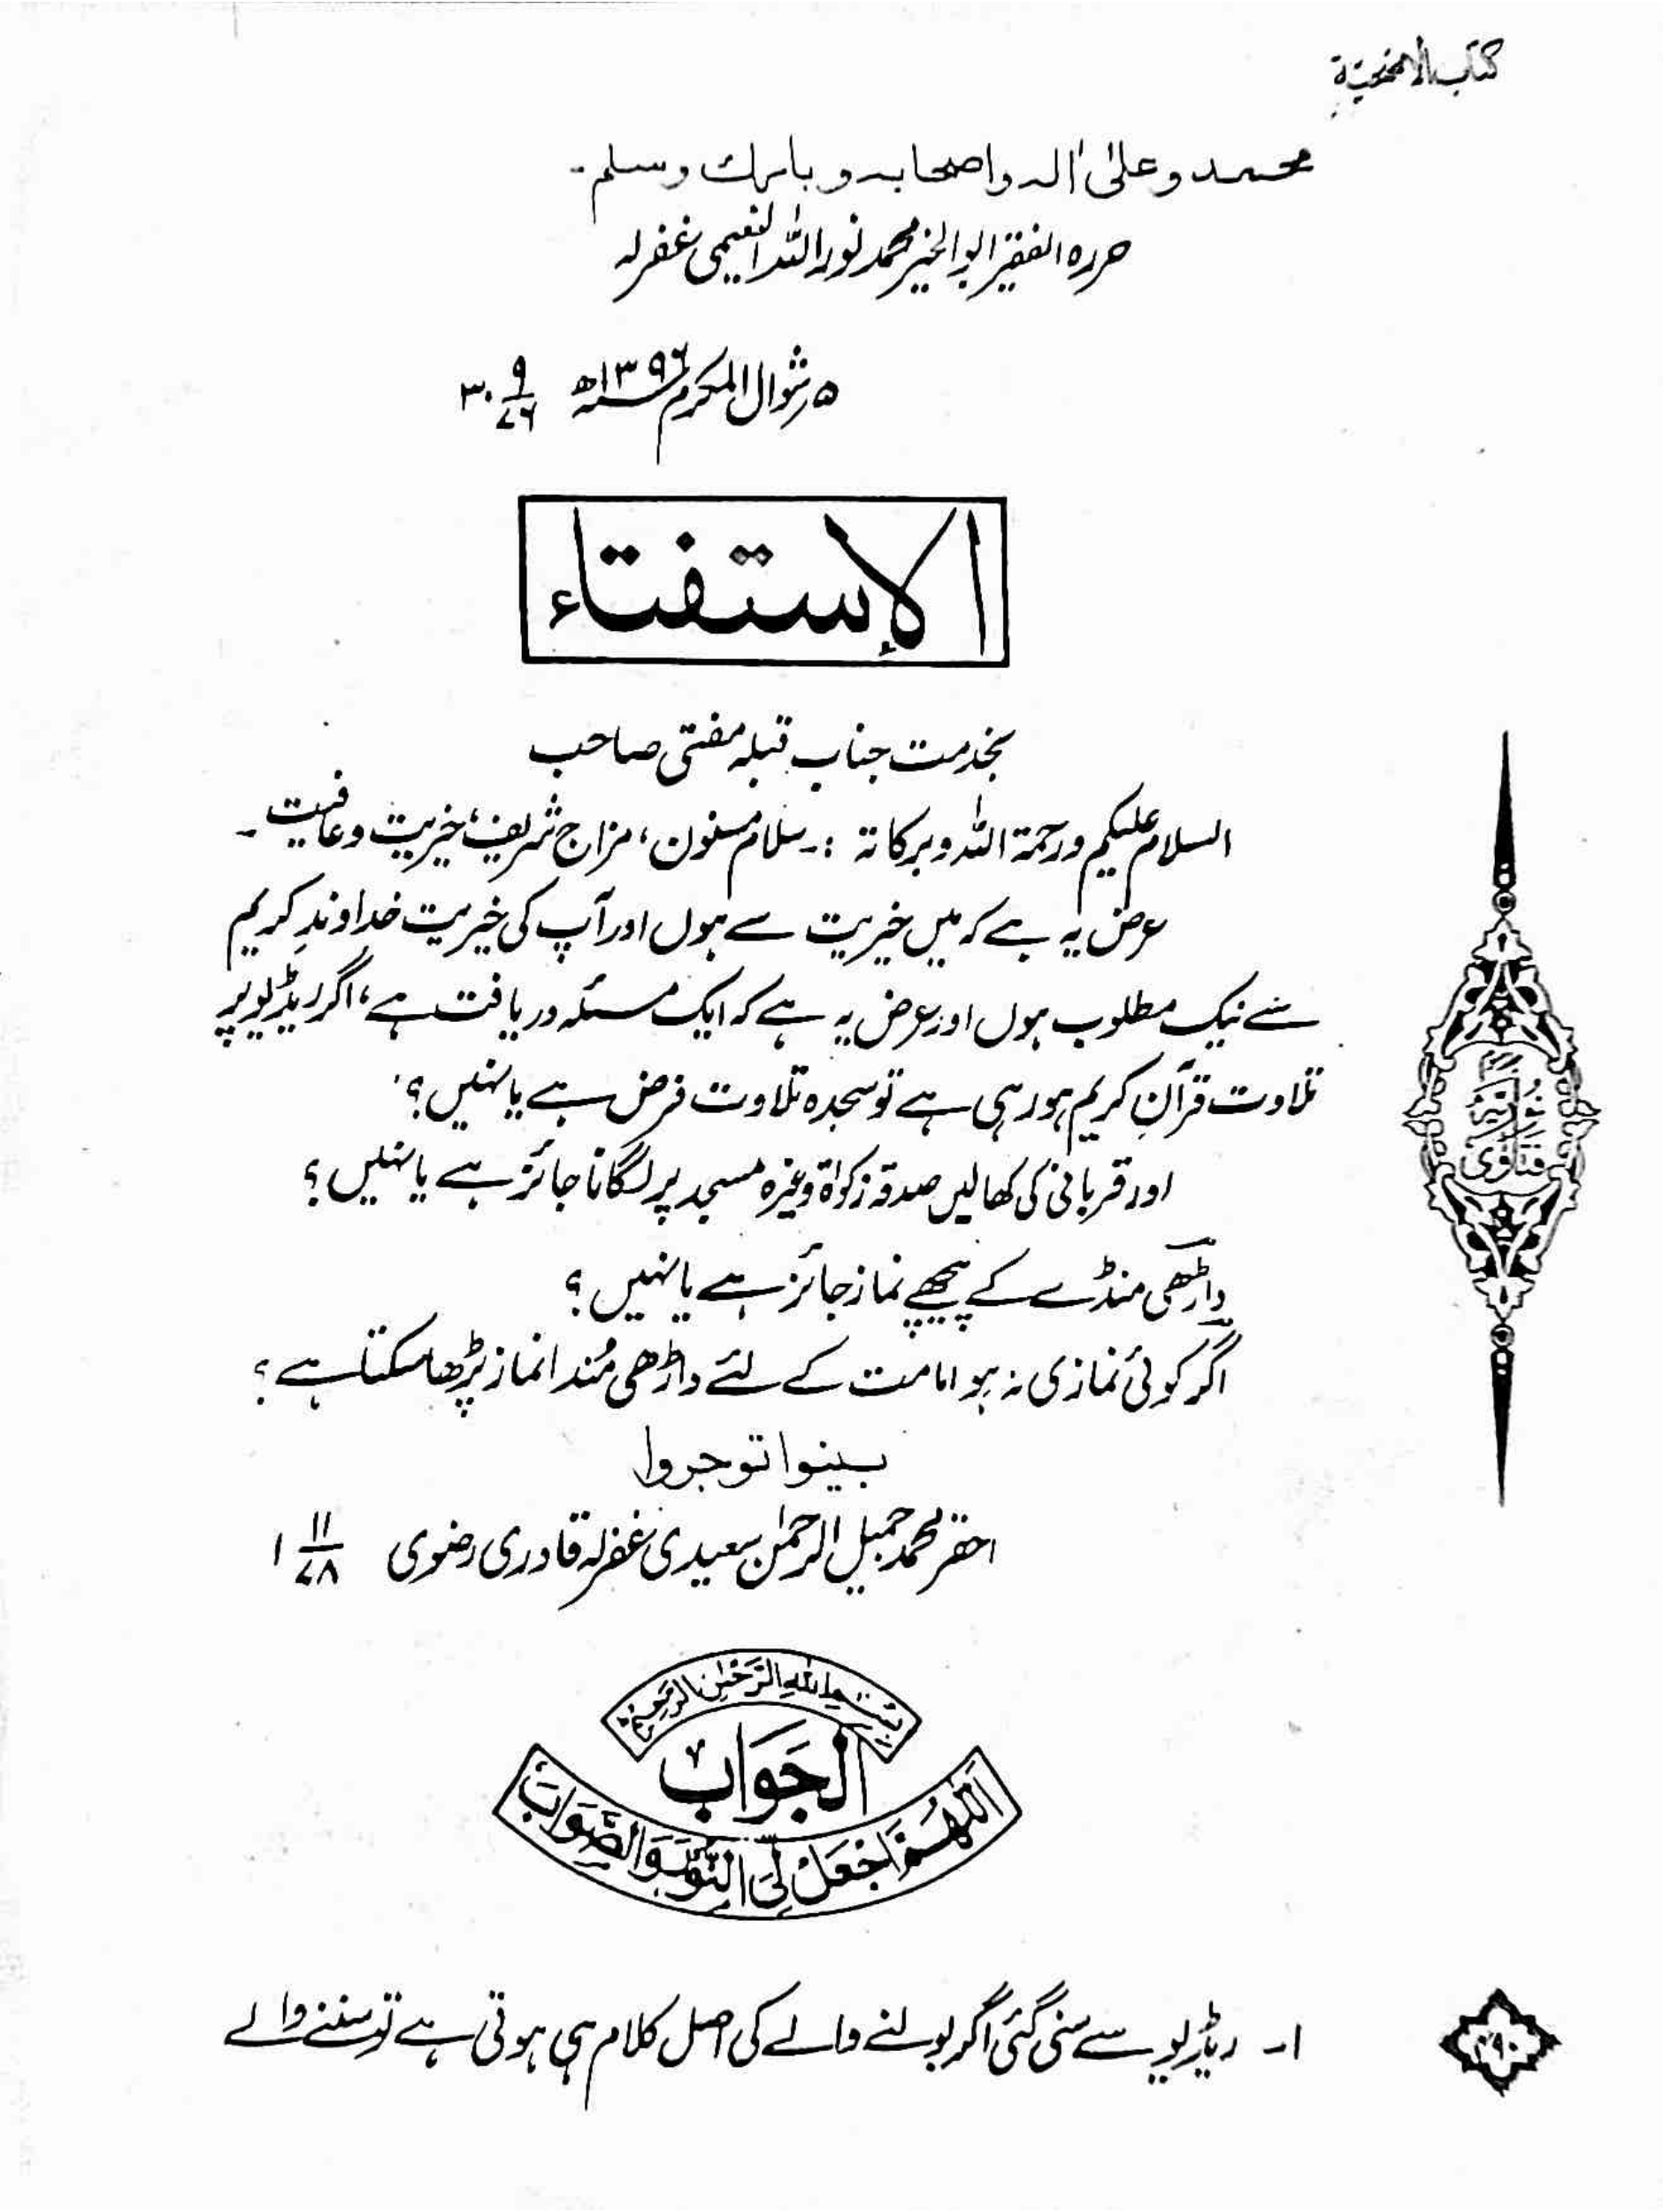 کتاب الاضحیۃ
محمد وعلىٰ اٰلہ واصحابہ وبارك وسلم۔
حررہ الفقیر ابوالخیر محمد نوراللہ النعیمی غفرلہ
۵ رشوال المکرم ۱۳۹۶ھ ۳۰ ۹/۷۶
الإستفتاء
بخدمت جناب قبلہ مفتی صاحب
السلام علیکم ورحمۃ اللہ وبرکاتہ :۔ سلام مسنون، مزاج شریف، خیریت و عافیت ۔
عرض یہ ہے کہ میں خیریت سے ہوں اور آپ کی خیریت خداوندِ کریم
سے نیک مطلوب ہوں اور عرض یہ ہے کہ ایک مسئلہ دریافت ہے، اگر ریڈیو پر
تلاوت قرآنِ کریم ہو رہی ہے تو سجدہ تلاوت فرض ہے یا نہیں؟
اور قربانی کی کھالیں صدقہ زکوٰۃ وغیرہ مسجد پر لگانا جائز ہے یا نہیں؟
داڑھی منڈے کے پیچھے نماز جائز ہے یا نہیں؟
اگر کوئی نمازی نہ ہو امامت کے لئے داڑھی مُنڈا نماز پڑھا سکتا ہے؟
بینوا توجروا
احقر محمد جمیل الرحمٰن سعیدی غفرلہ قادری رضوی ۱ ۱۱/۷۸
فتاوی نوریہ
بسم اللہ الرحمٰن الرحیم
الجَوَاب
اللّٰھُمَّ اجْعَلْ لِیَ النُّوْرَ وَالصَّوَابَ
۱۔ ریڈیو سے سنی گئی اگر بولنے والے کی اصل کلام ہی ہوتی ہے تو سننے والے